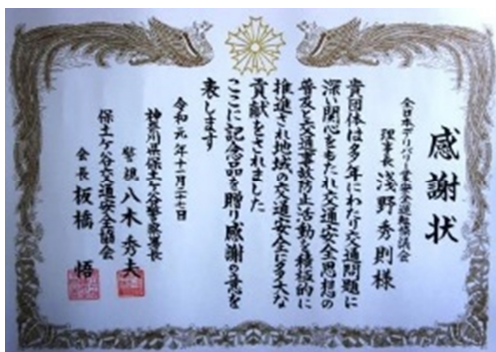 感謝状
全日本デリバリー業安全運転協議会
理事長 浅野秀則様
貴団体は多年にわたり交通問題に
深い関心をもたれ交通安全思想の
普及と交通事故防止活動を積極的に
推進され地域の交通安全に多大な
貢献をされました
ここに記念品を贈り感謝の意を
表します
令和元年十一月二十七日
神奈川県保土ケ谷警察署長
警視 八木秀夫
保土ケ谷交通安全協会
会長 板橋 悟